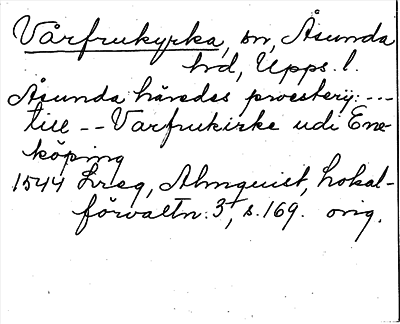 Vårfrukyrka, sn, Åsunda
hd, Upps. l.
Åsunda häredes proesterij: ---
till -- Varfrukirke udi Ene-
köping
1544 Lreg, Almquist, Lokal-
förvaltn. 3, s. 169. orig.